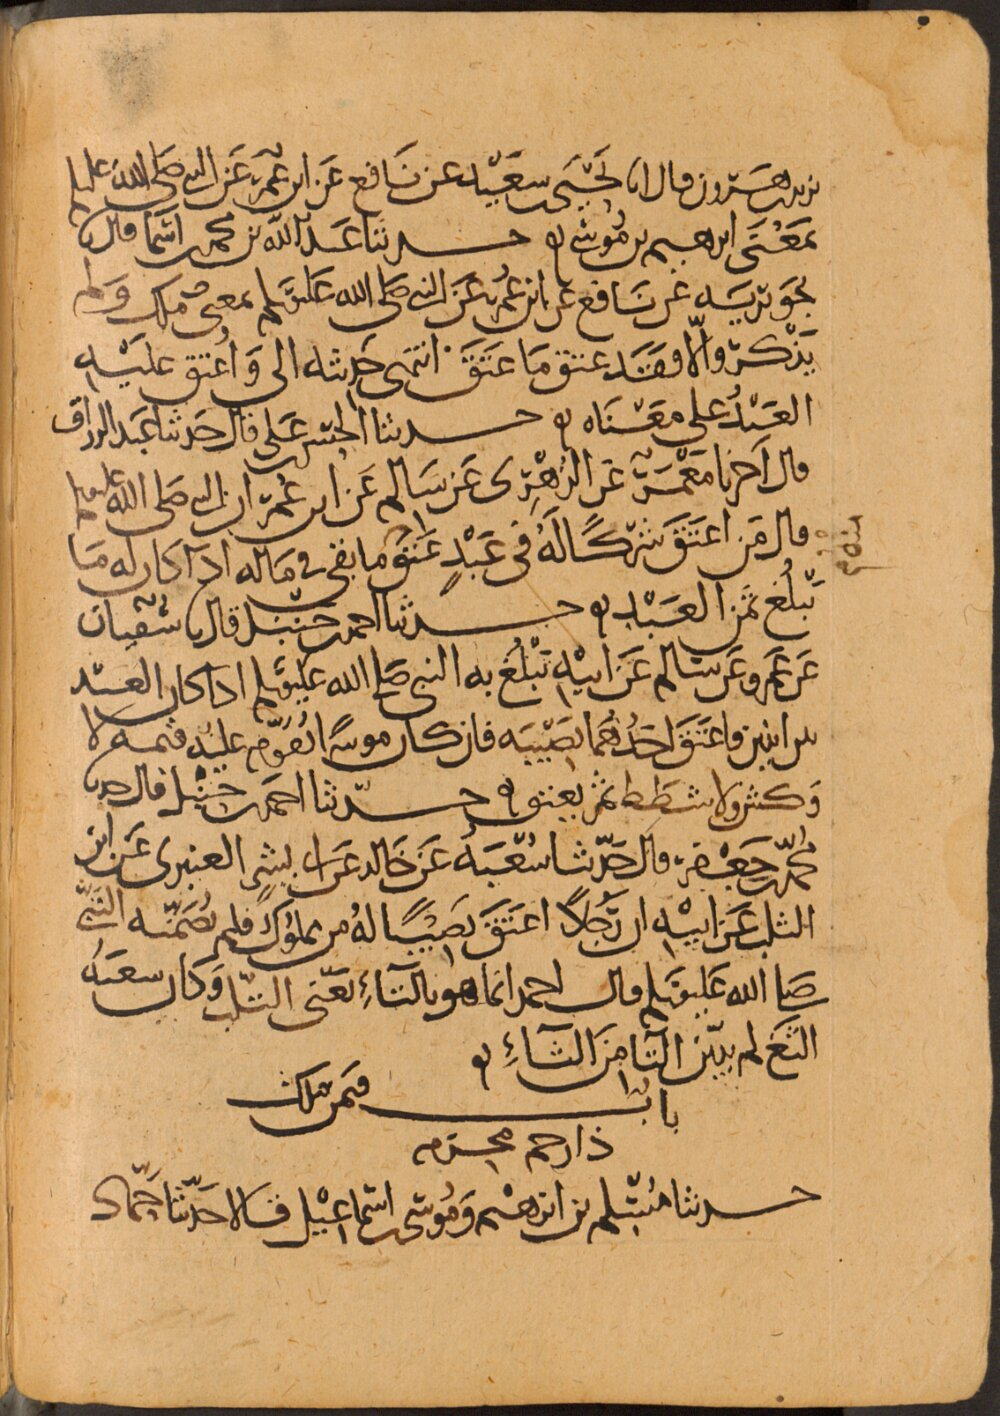 يزيد بن هرون قال انا يحيى بن سعيد عن نافع عن ابن عمر عن النبي صلى الله عليه وسلم
بمعنى ابرهيم بن موسى ه حدثنا عبد الله بن محمد بن اسما قال نا
جويرية عن نافع عن ابن عمر عن النبي صلى الله عليه وسلم بمعنى ملك ولم
يذكر والا فقد عتق ما عتق انتهى حديثه الى واعتق عليه
العبد على معناه ه حدثنا الحسن بن على قال حدثنا عبد الرزاق
قال اخبرنا معمر عن الزهرى عن سالم عن ابن عمر ان النبي صلى الله عليه وسلم
قال من اعتق شركا له فى عبد عتق ما بقى فى ماله اذا كان له ما
يبلغ ثمن العبد ه حدثنا احمد بن حنبل قال نا سفيان
عن عمرو عن سالم عن ابيه يبلغ به النبي صلى الله عليه وسلم اذا كان العبد
بين اثنين فاعتق احدهما نصيبه فان كان موسرا يقوم عليه قيمة لا
وكس ولا شطط ثم يعتق ه حدثنا احمد بن حنبل قال حدثنا
محمد بن جعفر قال حدثنا شعبة عن خالد عن ابى بشر العنبرى عن ابن
الثلب عن ابيه ان رجلا اعتق نصيبا له من مملوك فلم يضمنه النبي
صلى الله عليه وسلم قال احمد انما هو بالتاء يعنى التلب وكان شعبة
الثغ لم يبين التا من الثاء ه
باب فيمن ملك
ذا رحم محرم
حدثنا مسلم بن ابرهيم وموسى بن اسماعيل قالا حدثنا حماد